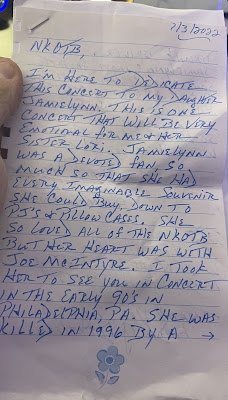 7/3/2022
NKOTB,
I'M HERE TO DEDICATE
THIS CONCERT TO MY DAUGHTER
JAMIELYNN. THIS IS ONE
CONCERT THAT WILL BE VERY
EMOTIONAL FOR ME & HER
SISTER LORI. JAMIELYNN
WAS A DEVOTED FAN, SO
MUCH SO THAT SHE HAD
EVERY IMAGINABLE SOUVENIR
SHE COULD BUY, DOWN TO
PJ'S & PILLOW CASES. SHE
SO LOVED ALL OF THE NKOTB
BUT HER HEART WAS WITH
JOE MCINTYRE. I TOOK
HER TO SEE YOU IN CONCERT
IN THE EARLY 90'S IN
PHILADELPHIA, PA. SHE WAS
KILLED IN 1996 BY A →